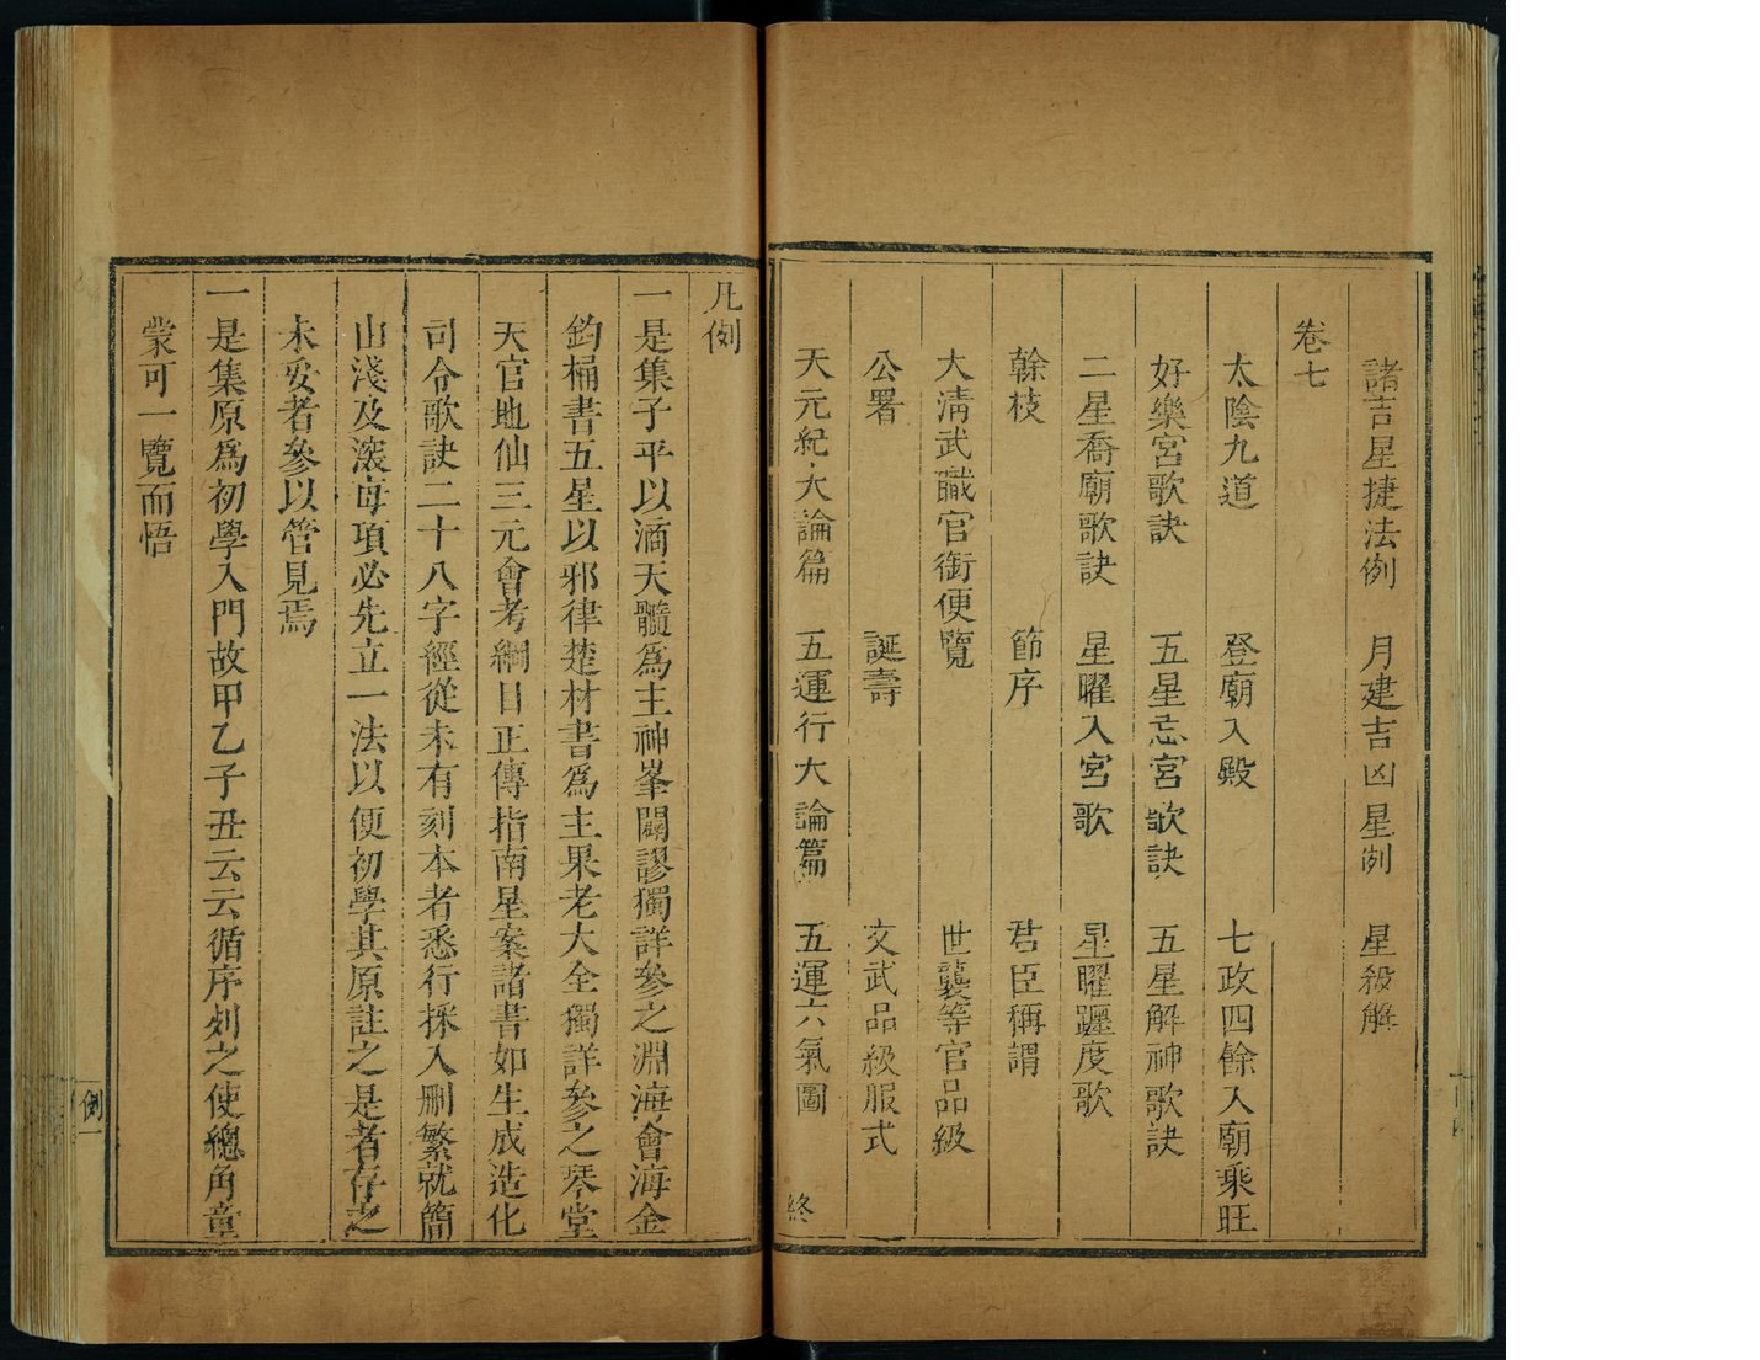 諸吉星捷法例　月建吉凶星例　星殺解
卷七
太陰九道　登廟入殿　七政四餘入廟乘旺
好樂宮歌訣　五星忌宮歌訣　五星解神歌訣
二星喬廟歌訣　星曜入宮歌　星曜躔度歌
榦枝　節序　君臣稱謂
大淸武職官銜便覽　世襲等官品級
公署　誕壽　文武品級服式
天元紀大論篇　五運行大論篇　五運六氣圖　終
凡例
一是集子平以滴天髓爲主神峯闢謬獨詳參之淵海會海金
鈞桶書五星以邪律楚材書爲主果老大全獨詳參之琴堂
天官地仙三元會考綱目正傳指南星案諸書如生成造化
司令歌訣二十八字經從未有刻本者悉行採入刪繁就簡
山淺及深每項必先立一法以便初學其原註之是者存之
未妥者參以管見焉
一是集原爲初學入門故甲乙子丑云云循序列之使總角童
蒙可一覽而悟
例一